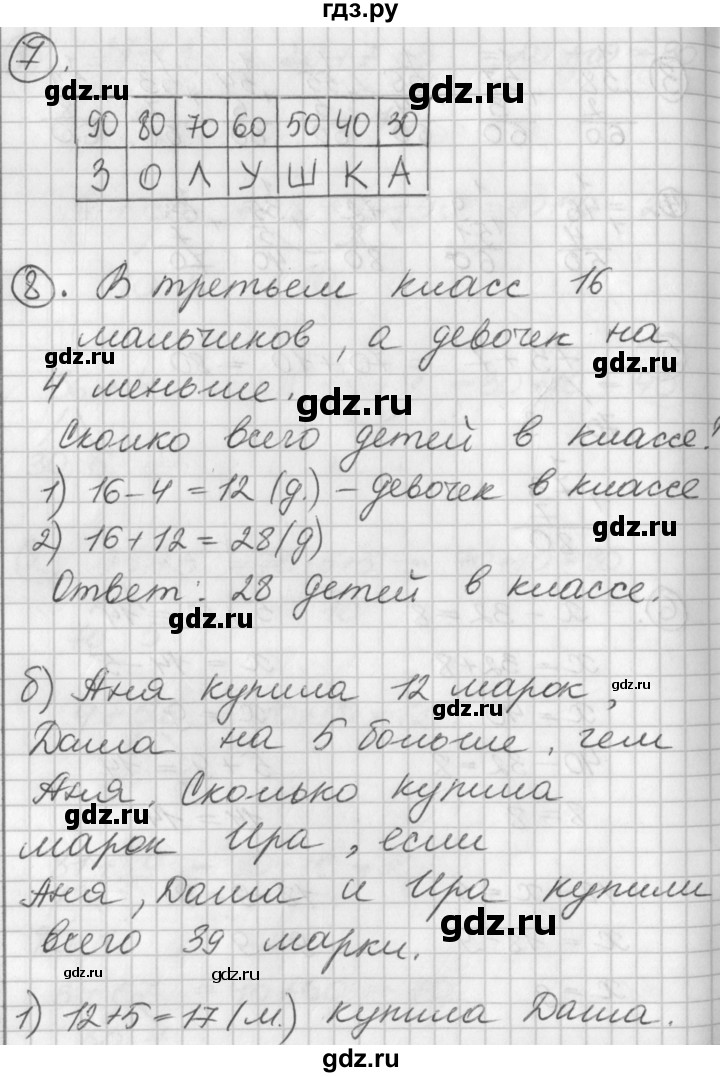 гдз.ру
7.
gdz.ru gdz.ru
90 80 70 60 50 40 30
З О Л У Ш К А
8. В третьем класс 16
мальчиков, а девочек на
gdz.ru gdz.ru
4 меньше.
gdz.ru
Сколко всего детей в классе?
1) 16-4=12 (д.) – девочек в классе
gdz.ru
2) 16+12=28(д)
Ответ: 28 детей в классе.
gdz.ru
б) Аня купила 12 марок,
gdz.ru gdz.ru
Даша на 5 больше, чем
Аня. Сколько купила
gdz.ru
марок Ира, если
Аня, Даша и Ира купили
gdz.ru
всего 39 марки.
gdz.ru gdz.ru
1) 12+5=17(м.) купила Даша.
gdz.ru